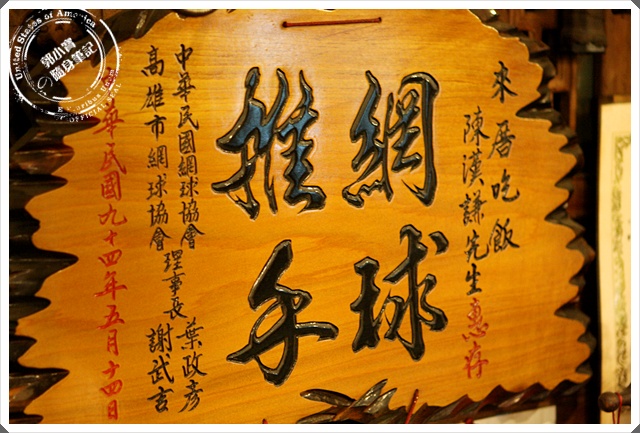 來厝吃飯
陳漢謙先生惠存
網球
推手
中華民國網球協會
理事長 葉政彦
高雄市網球協會
謝武吉
華民國九十四年五月十四日
United States of America
郭小寶
の隨身筆記
OFFICIAL SEAL